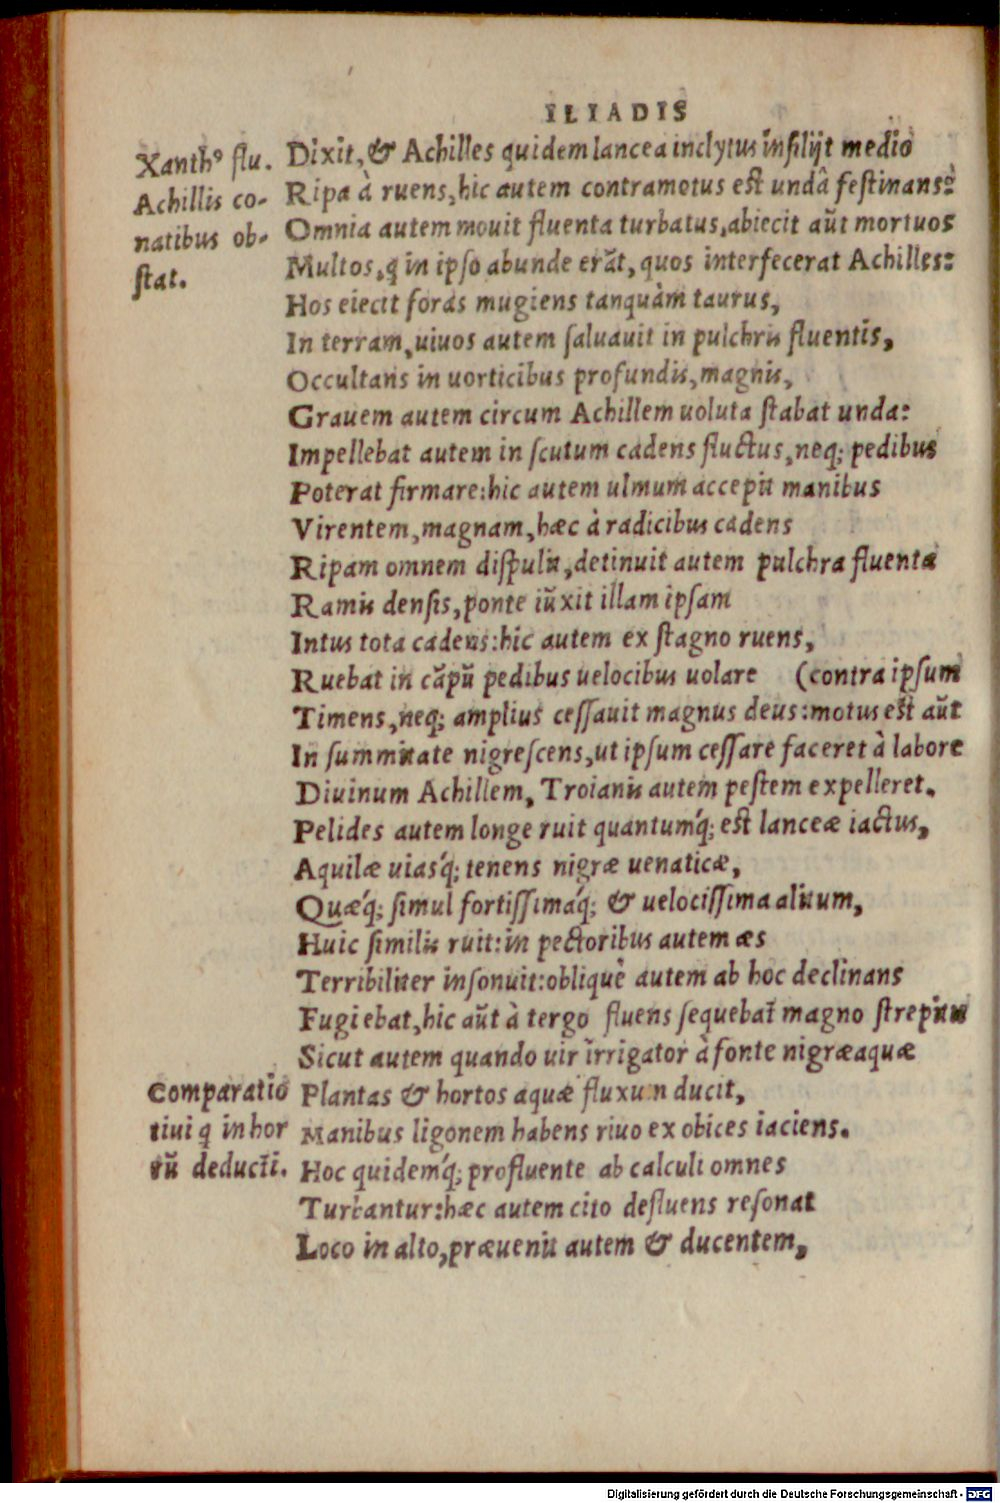 ILIADIS
Xanthꝰ flu.
Achillis co-
natibus ob-
stat.
Dixit, & Achilles quidem lancea inclytus insilijt medio
Ripa à ruens, hic autem contramotus est undâ festinans:
Omnia autem mouit fluenta turbatus, abiecit aūt mortuos
Multos, q̃ in ipso abunde erāt, quos interfecerat Achilles:
Hos eiecit foras mugiens tanquàm taurus,
In terram, uiuos autem saluauit in pulchris fluentis,
Occultans in uorticibus profundis, magnis,
Grauem autem circum Achillem uoluta stabat unda:
Impellebat autem in scutum cadens fluctus, neq; pedibus
Poterat firmare: hic autem ulmum accepit manibus
Virentem, magnam, hæc à radicibus cadens
Ripam omnem dispulit, detinuit autem pulchra fluenta
Ramis densis, ponte iūxit illam ipsam
Intus tota cadens: hic autem ex stagno ruens,
Ruebat in cāpū pedibus uelocibus uolare (contra ipsum
Timens, neq; amplius cessauit magnus deus: motus est aūt
In summitate nigrescens, ut ipsum cessare faceret à labore
Diuinum Achillem, Troianis autem pestem expelleret.
Pelides autem longe ruit quantumq́; est lanceæ iactus,
Aquilæ uiasq́; tenens nigræ uenaticæ,
Quæq́; simul fortissimaq́; & uelocissima alitum,
Huic similis ruit: in pectoribus autem æs
Terribiliter insonuit: obliquè autem ab hoc declinans
Fugiebat, hic aūt à tergo fluens sequebat̃ magno strepitu
Sicut autem quando uir irrigator à fonte nigræ aquæ
Comparatio
riui q̃ in hor
tū deducit̃.
Plantas & hortos aquæ fluxum ducit,
Manibus ligonem habens riuo ex obices iaciens.
Hoc quidemq́; profluente ab calculi omnes
Turbantur: hæc autem cito defluens resonat
Loco in alto, præuenit autem & ducentem,
Digitalisierung gefördert durch die Deutsche Forschungsgemeinschaft - DFG